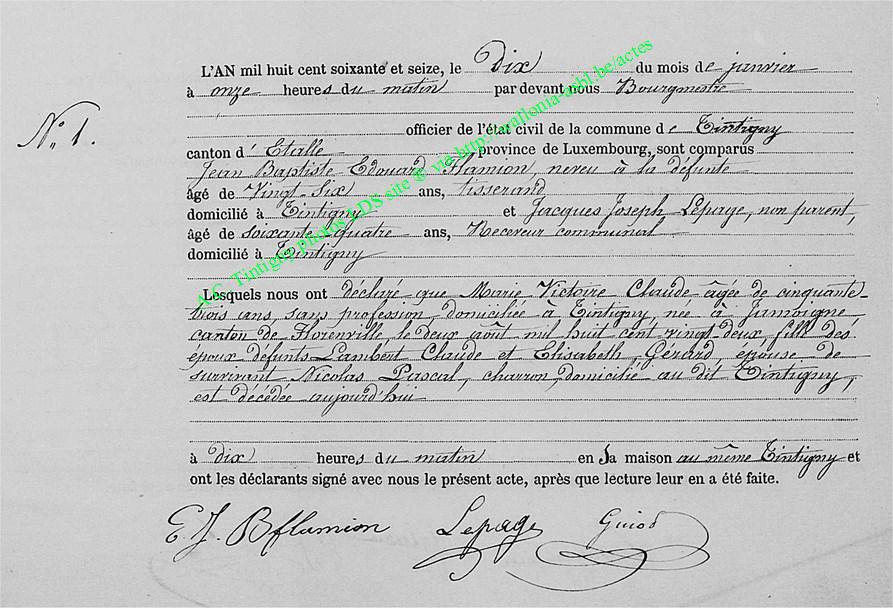 N° 1.
L'AN mil huit cent soixante et seize, le Dix du mois de janvier
à onze heures du matin par devant nous Bourgmestre
officier de l'état civil de la commune de Tintigny
canton d'Etalle province de Luxembourg, sont comparus
Jean Baptiste Edouard Flamion, neveu à la défunte
âgé de Vingt Six ans, tisserand
domicilié à Tintigny et Jacques Joseph Lepage, non parent,
âgé de soixante quatre ans, Receveur communal
domicilié à Tintigny
Lesquels nous ont déclaré que Marie Victoire Claude âgée de cinquante-
trois ans, sans profession, domiciliée à Tintigny, née à Jamoigne
canton de Florenville le deux août mil huit cent vingt deux, fille des
époux défunts Lambert Claude et Elisabeth Gérard, épouse de
survivant Nicolas Pascal, charron, domicilié au dit Tintigny,
est décédée aujourd'hui
à dix heures du matin en sa maison au même Tintigny et
ont les déclarants signé avec nous le présent acte, après que lecture leur en a été faite.
E. J. Bflamion Lepage Guiod
A.C. Tintigny photos LDS site © via http://wallonia-asbl.be/actes